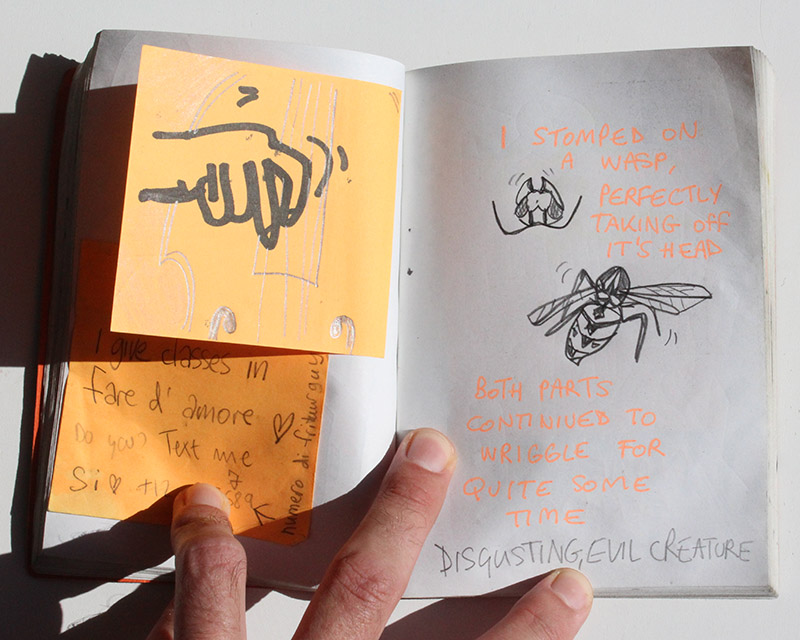 I give classes in
fare d' amore
Do you? Text me
Si
numero di
I STOMPED ON
A WASP,
PERFECTLY
TAKING OFF
IT'S HEAD
BOTH PARTS
CONTINUED TO
WRIGGLE FOR
QUITE SOME
TIME
DISGUSTING, EVIL CREATURE